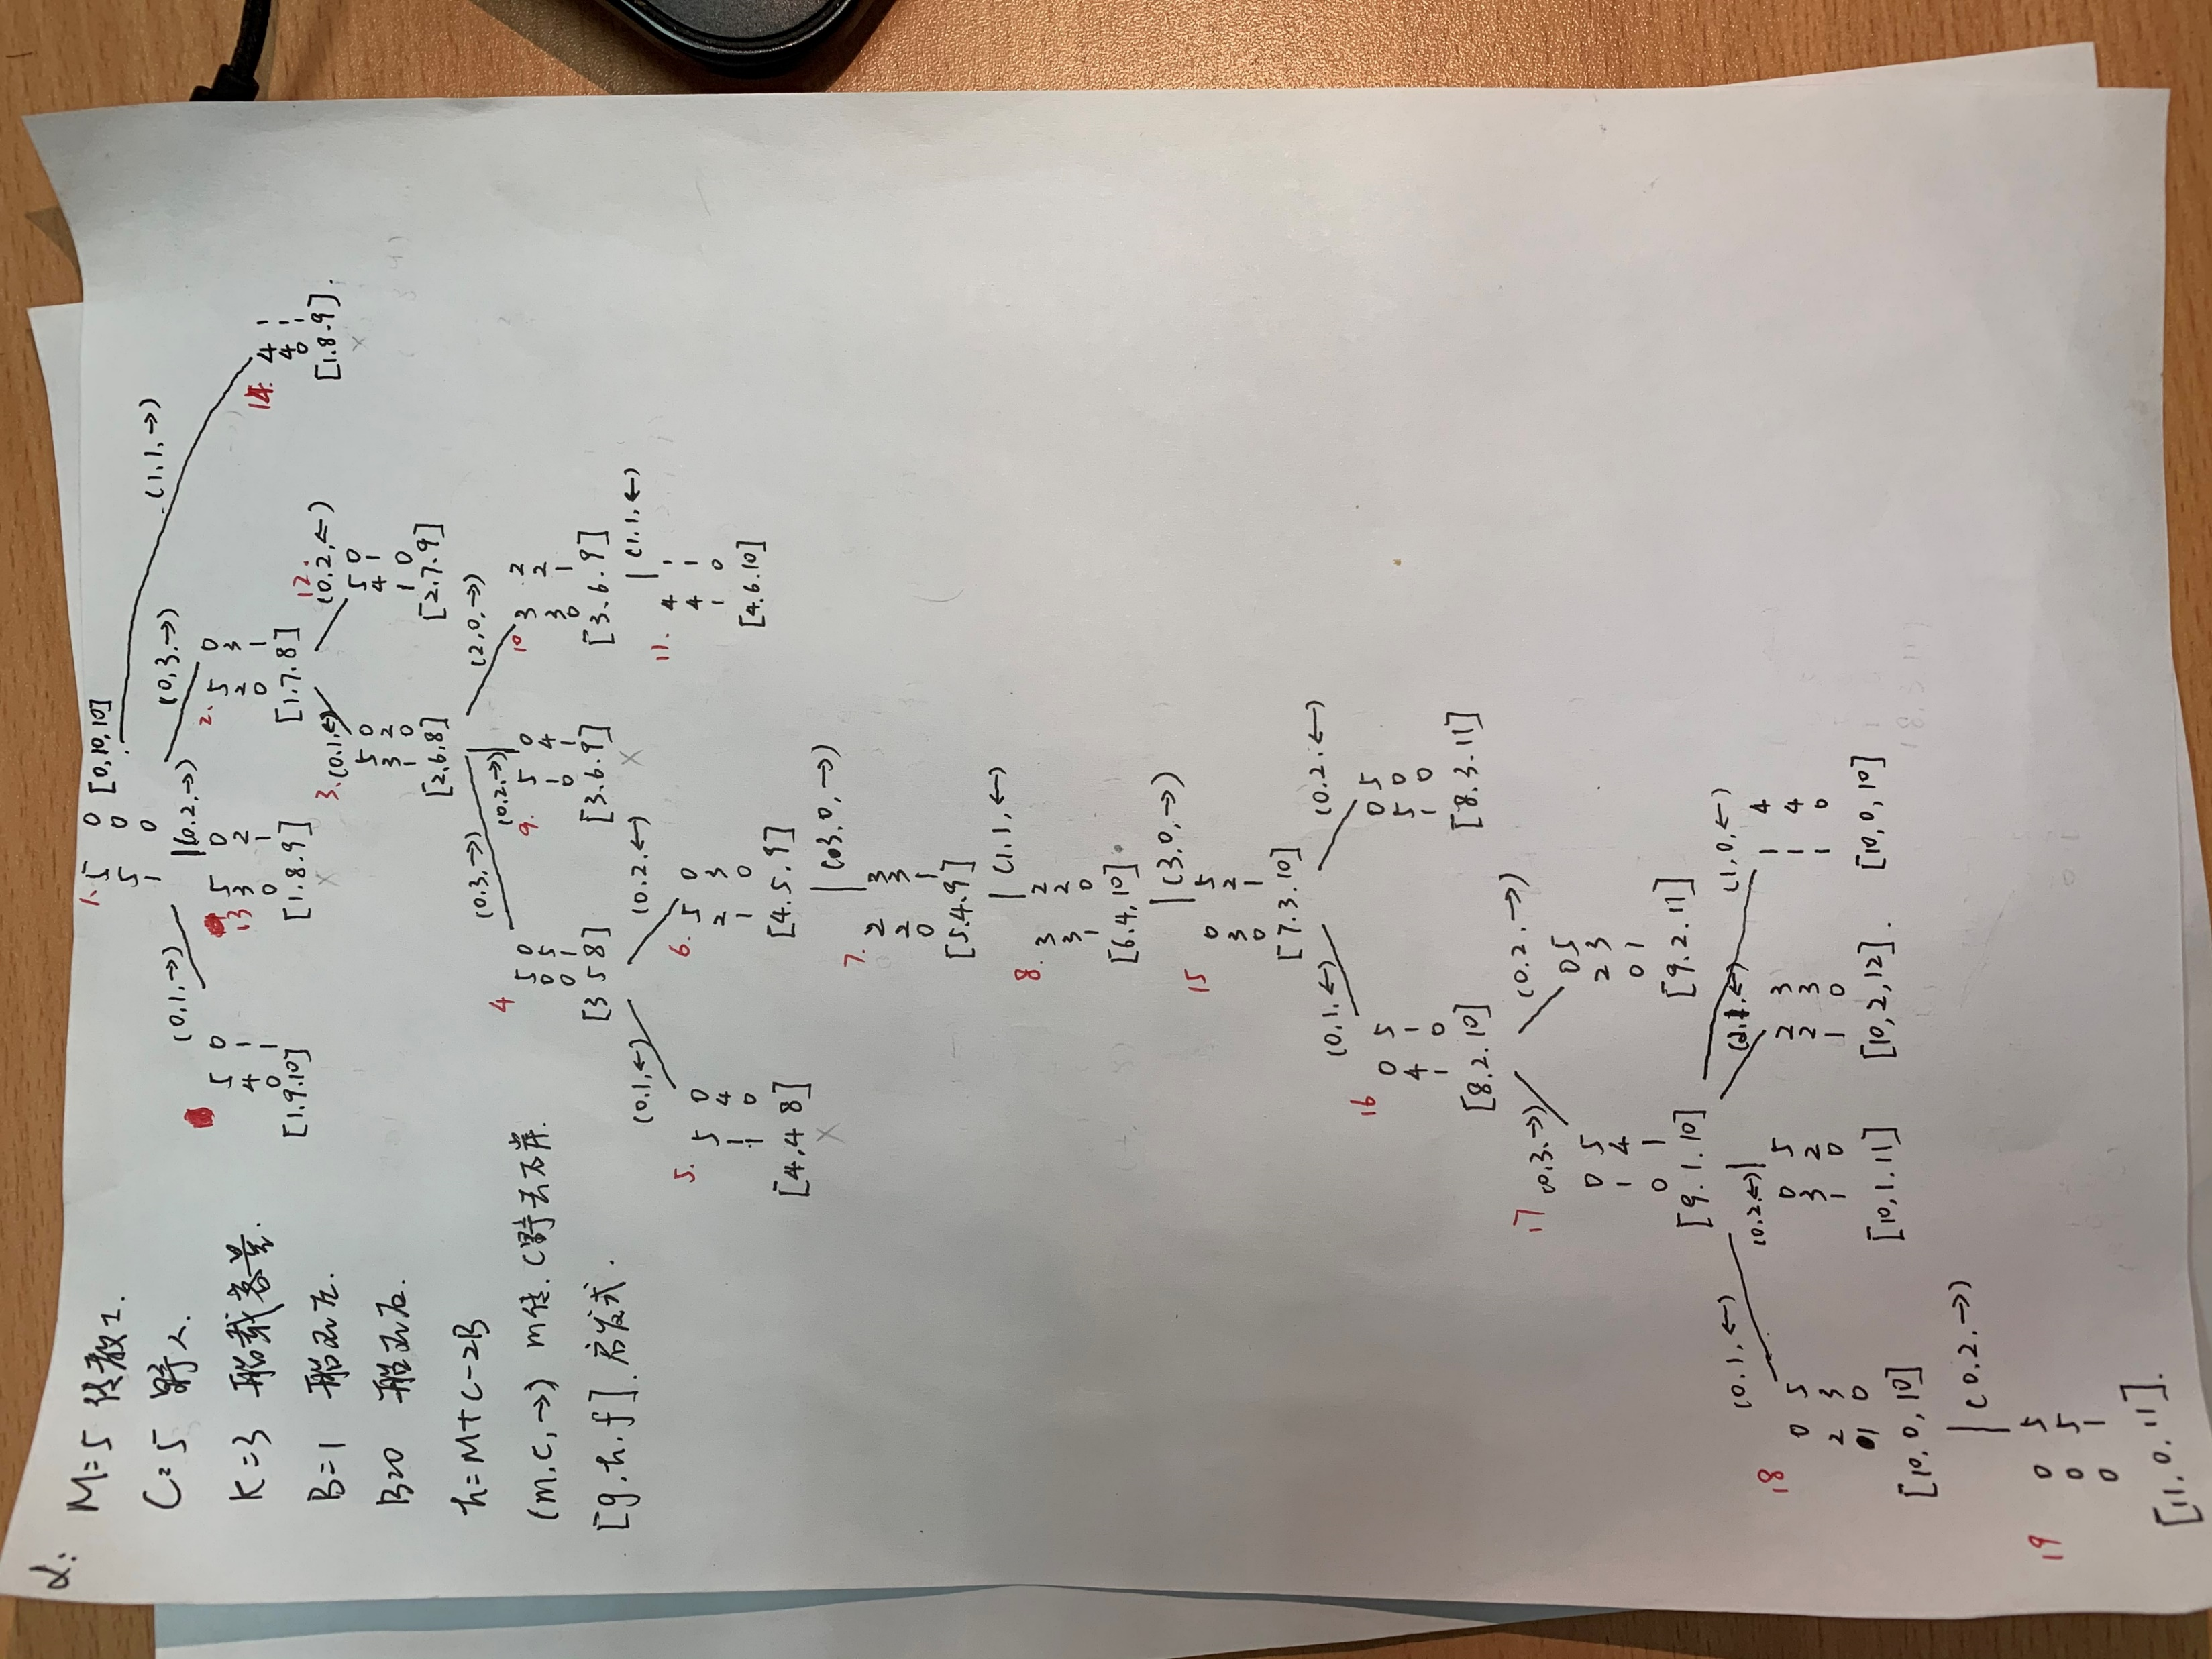 α:
M=5 传教士.
C=5 野人.
K=3 船载容量.
B=1 船在左.
B=0 船在右.
h=M+C-2B
(m,c,→) m传.c野去右岸.
[g.h.f].启发式.
1. 5 0
5 0
1 0
[0,10,10]
(0,1,→)
5 0
4 1
0 1
[1.9.10]
(0.2,→)
13 5 0
3 2
0 1
[1.8.9]
×
(0,3,→)
2. 5 0
2 3
0 1
[1.7.8]
(1.1,→)
14. 4 1
4 1
0 1
[1.8.9].
×
3. (0.1,←)
5 0
3 2
1 0
[2,6,8]
12.
(0.2,←)
5 0
4 1
1 0
[2.7.9]
(0.3,→)
4 5 0
0 5
0 1
[3 5 8]
(0.2,→)
9. 5 0
1 4
0 1
[3.6.9]
×
(2,0,→)
10 3 2
3 2
0 1
[3.6.9]
(1.1,←)
11. 4 1
4 1
1 0
[4.6.10]
(0.1,←)
5. 5 0
1 4
1 0
[4,4 8]
×
(0.2.←)
6. 5 0
2 3
1 0
[4.5.9]
(3.0,→)
7. 2 3
2 3
0 1
[5.4.9]
(1.1,←)
8. 3 2
3 2
1 0
[6.4,10]
(3.0,→)
15 0 5
3 2
0 1
[7.3.10]
(0.1.←)
16 0 5
4 1
1 0
[8.2.10]
(0.2.←)
0 5
5 0
1 0
[8.3.11]
17 (0.3.→)
0 5
1 4
0 1
[9.1.10]
(0.2.→)
0 5
2 3
0 1
[9.2.11]
(0.1,←)
18 0 5
2 3
1 0
[10,0,10]
(0.2.←)
0 5
3 2
1 0
[10,1.11]
2 3
2 3
1 0
[10,2,12].
(1,0,←)
1 4
1 4
1 0
[10,0,10]
(0.2.→)
19 0 5
0 5
0 1
[11.0.11].